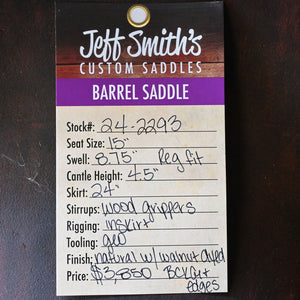 Jeff Smith's
CUSTOM SADDLES
BARREL SADDLE
Stock#: 24-2293
Seat Size: 15"
Swell: 8.75" Reg fit
Cantle Height: 4.5"
Skirt: 24"
Stirrups: wood grippers
Rigging: inskirt
Tooling: geo
Finish: natural w/ walnut dyed
Price: $3,850 Bckgrt
edges